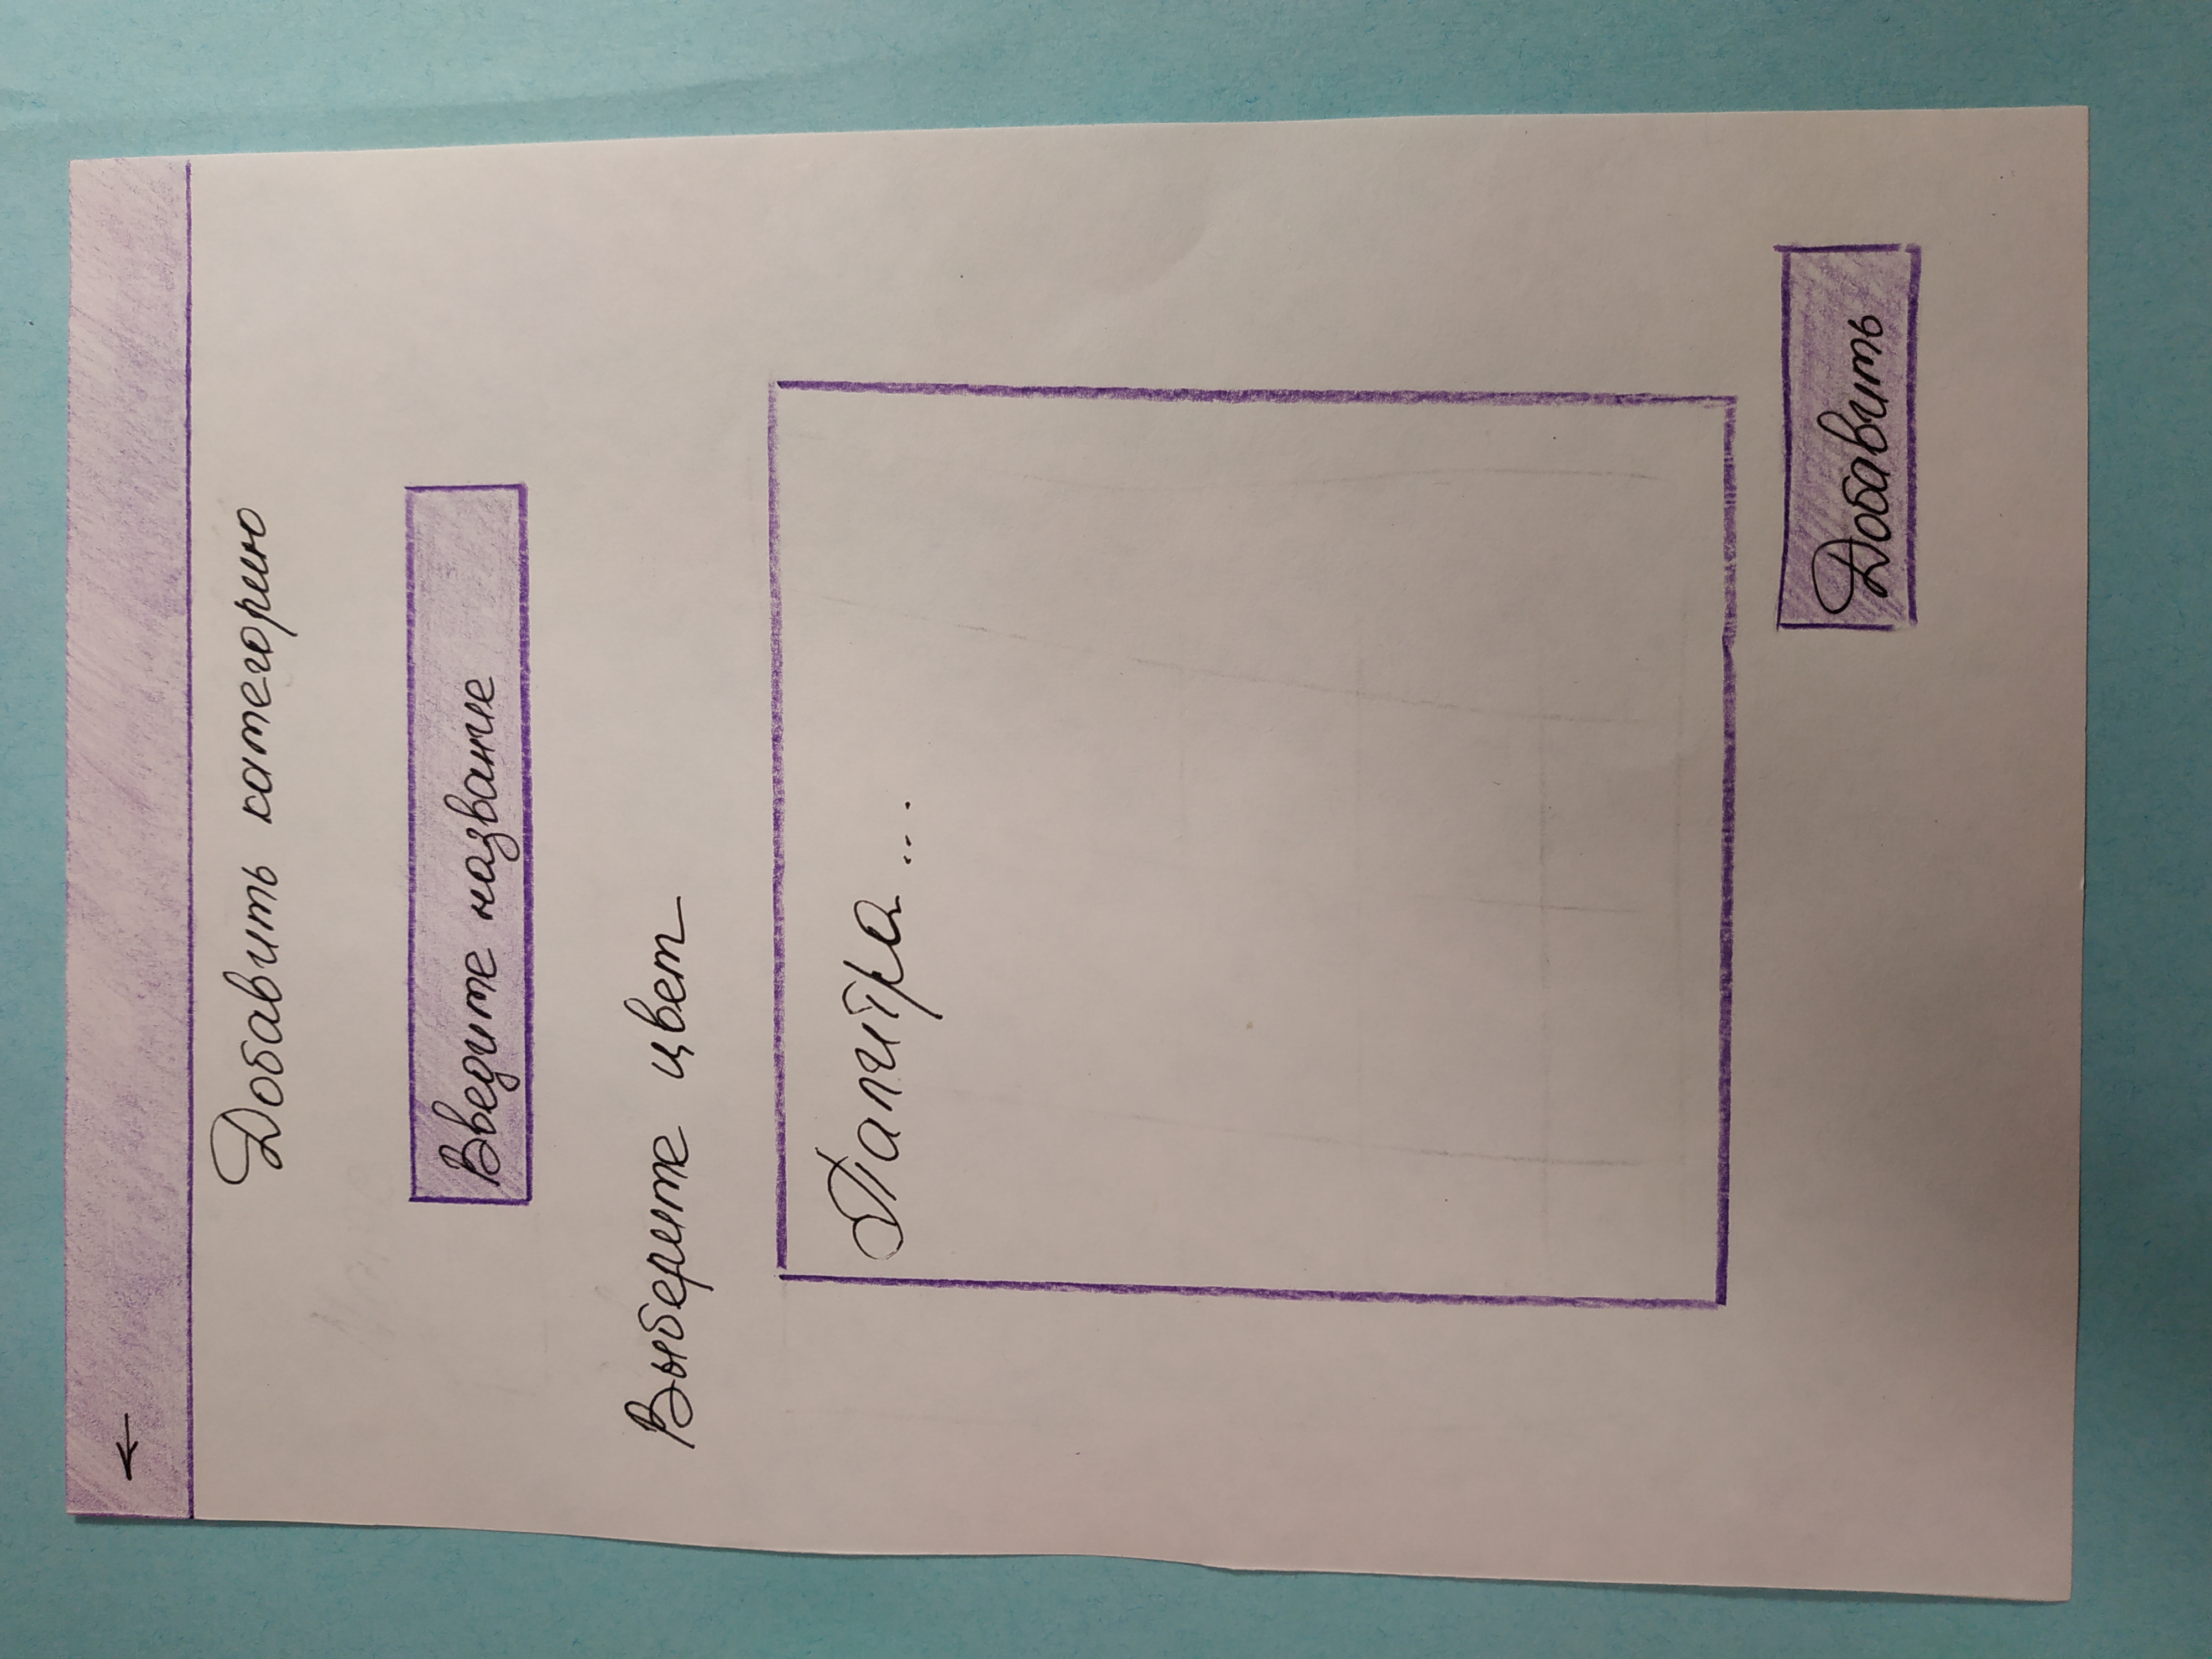 Добавить категорию
Введите название
Выберите цвет
Палитра...
Добавить